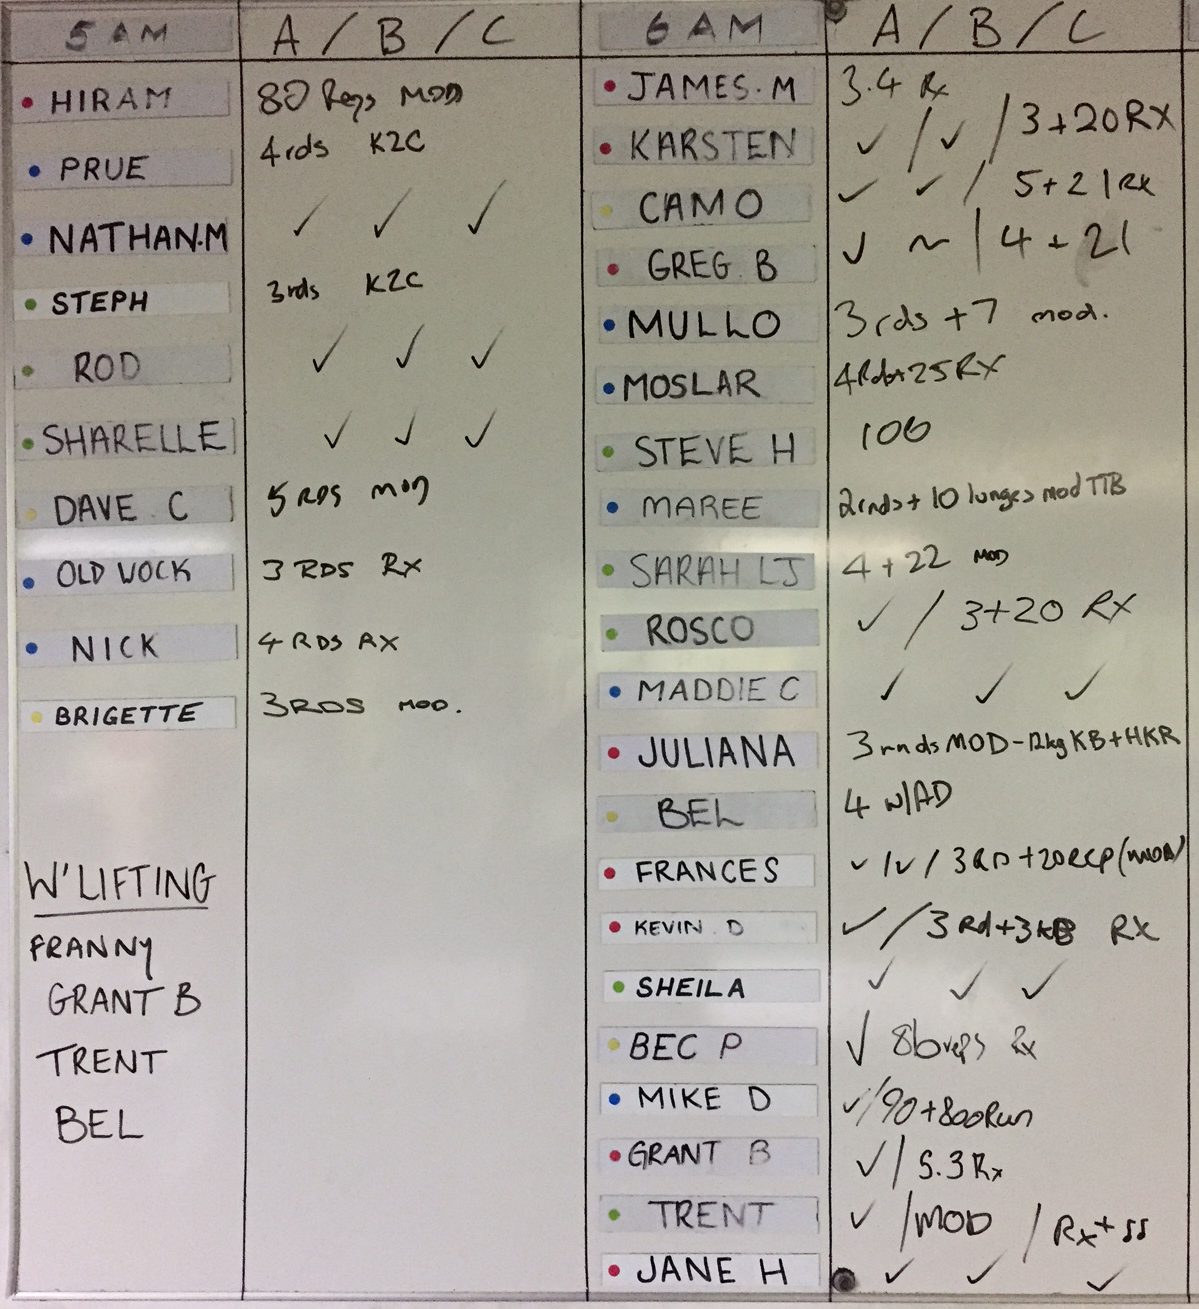 5 AM A / B / C
HIRAM 80 Reps MOD
PRUE 4rds K2C
NATHAN.M ✓ ✓ ✓
STEPH 3rds K2C
ROD ✓ ✓ ✓
SHARELLE ✓ ✓ ✓
DAVE C 5 RDS MOD
OLD WOCK 3 RDS RX
NICK 4 RDS RX
BRIGETTE 3RDS MOD.
W'LIFTING
FRANNY
GRANT B
TRENT
BEL
6 AM A / B / C
JAMES.M 3.4 Rx
KARSTEN ✓ / ✓ / 3+20 RX
CAMO ✓ ✓ / 5+21 Rx
GREG B ✓ ~ / 4+21
MULLO 3rds +7 mod.
MOSLAR 4Rds+25 RX
STEVE H 100
MAREE 2rnds + 10 lunges mod TTB
SARAH LJ 4+22 MOD
ROSCO ✓ / 3+20 RX
MADDIE C ✓ ✓ ✓
JULIANA 3rnds MOD-12kg KB+HKR
BEL 4 W/AD
FRANCES ✓ / ✓ / 3RD+20REP (MOD)
KEVIN D ✓ / 3 Rd+3KB RX
SHEILA ✓ ✓ ✓
BEC P ✓ 86reps Rx
MIKE D ✓/90+800Run
GRANT B ✓ / 5.3 Rx
TRENT ✓ /MOD / Rx+ss
JANE H ✓ ✓ ✓